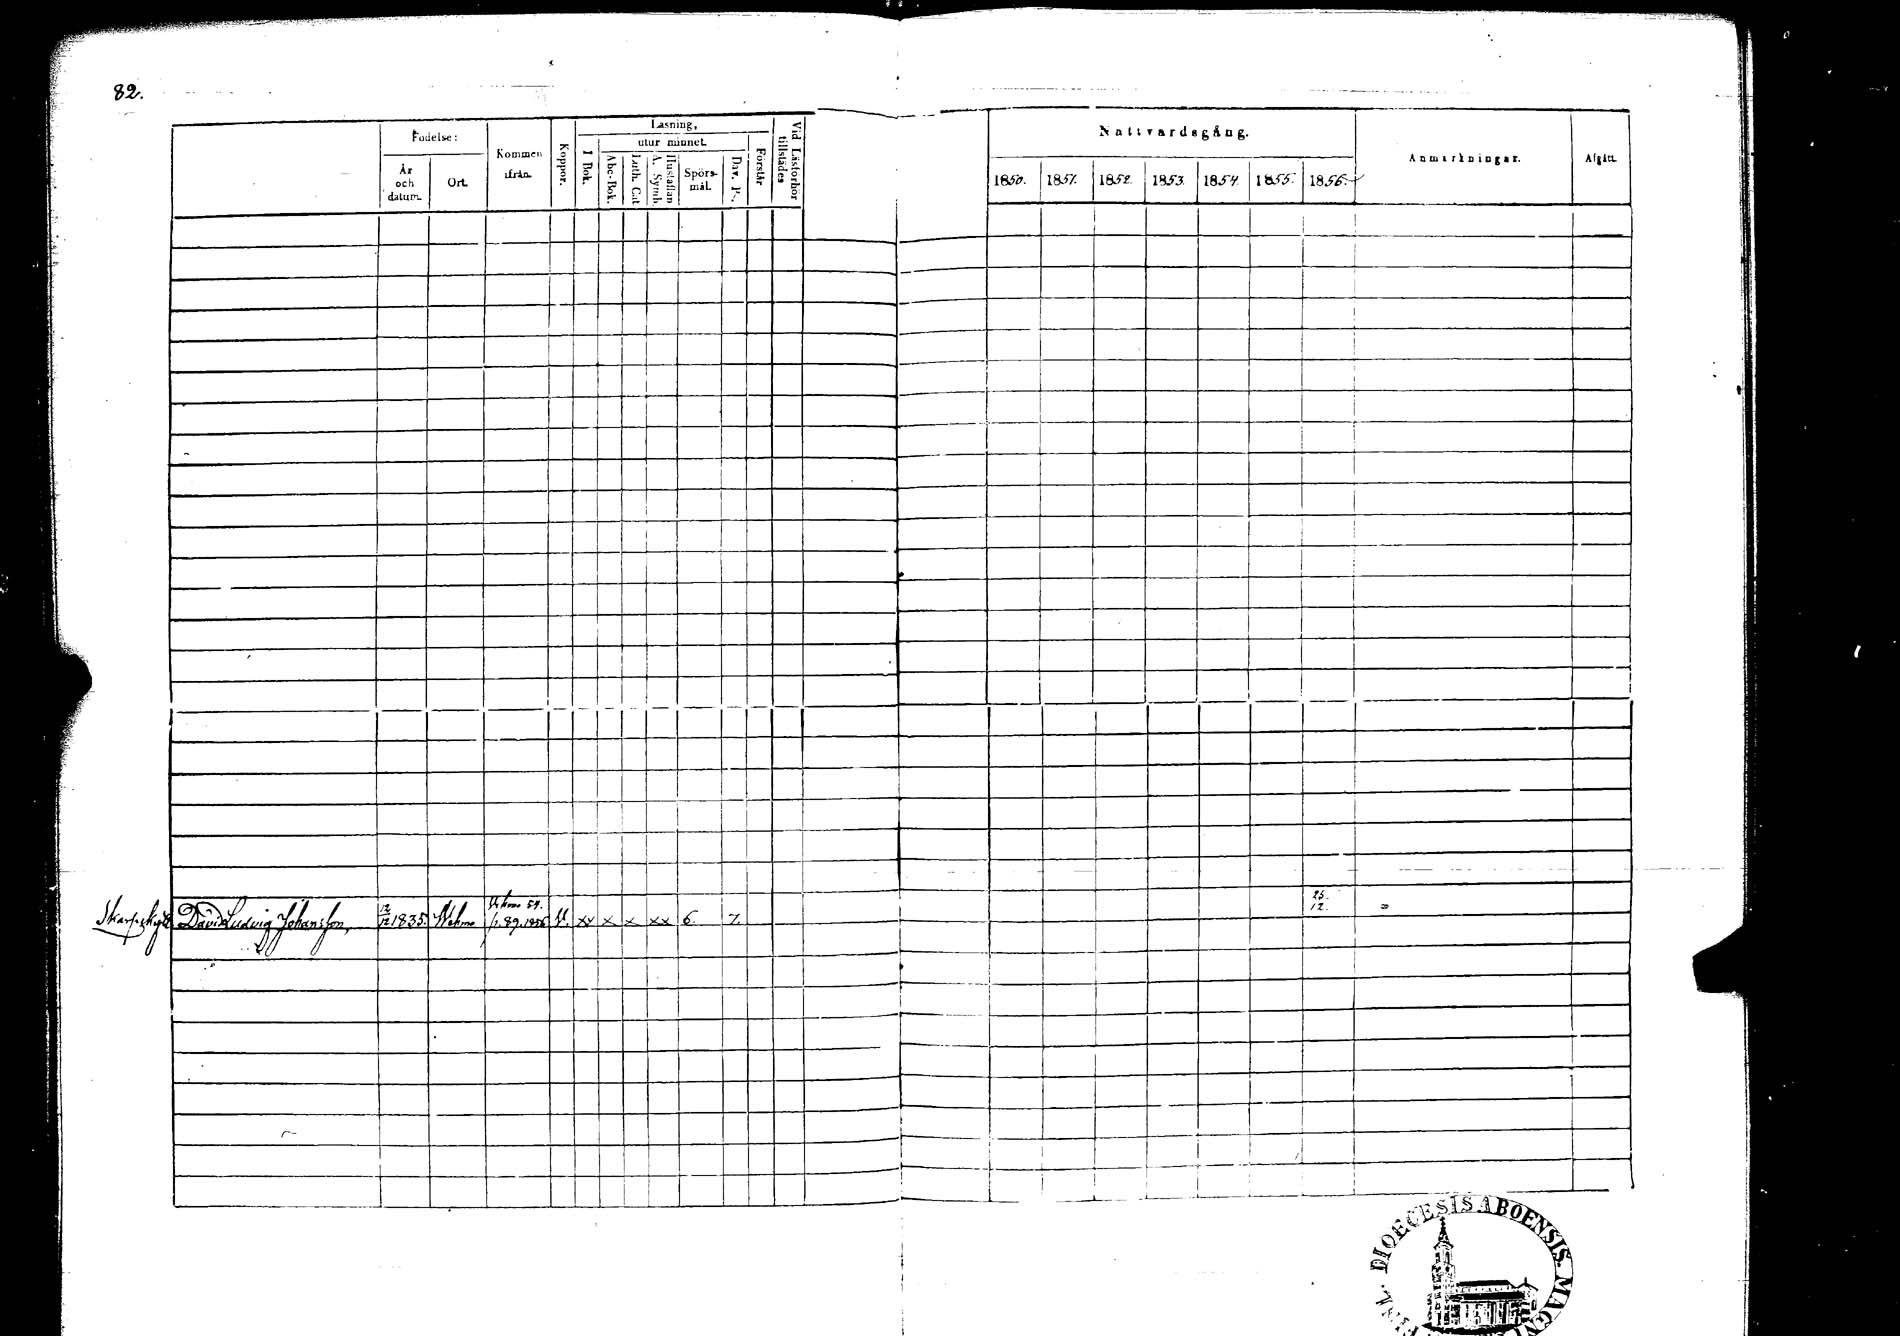 82.
Fodelse:
År och datum.
Ort.
Kommen ifrån.
Koppor.
Läsning,
I Bok.
utur minnet.
Abc-Bok.
Luth. Cat
Hustaflan A. Symb.
Spörs-mål.
Dav. Ps.
Förstår
Vid Läsförhör tillstädes
Nattvardsgång.
1850. 1851. 1852. 1853. 1854. 1855. 1856.
Anmärkningar.
Afgått.
Wehmo 54. 25.
David Ludvig Johansson, 12/12 1835. Wehmo p. 89. 1856 V. xx x x xx 6. 7. 12.
DIOECESIS ABOENSIS MAGNI